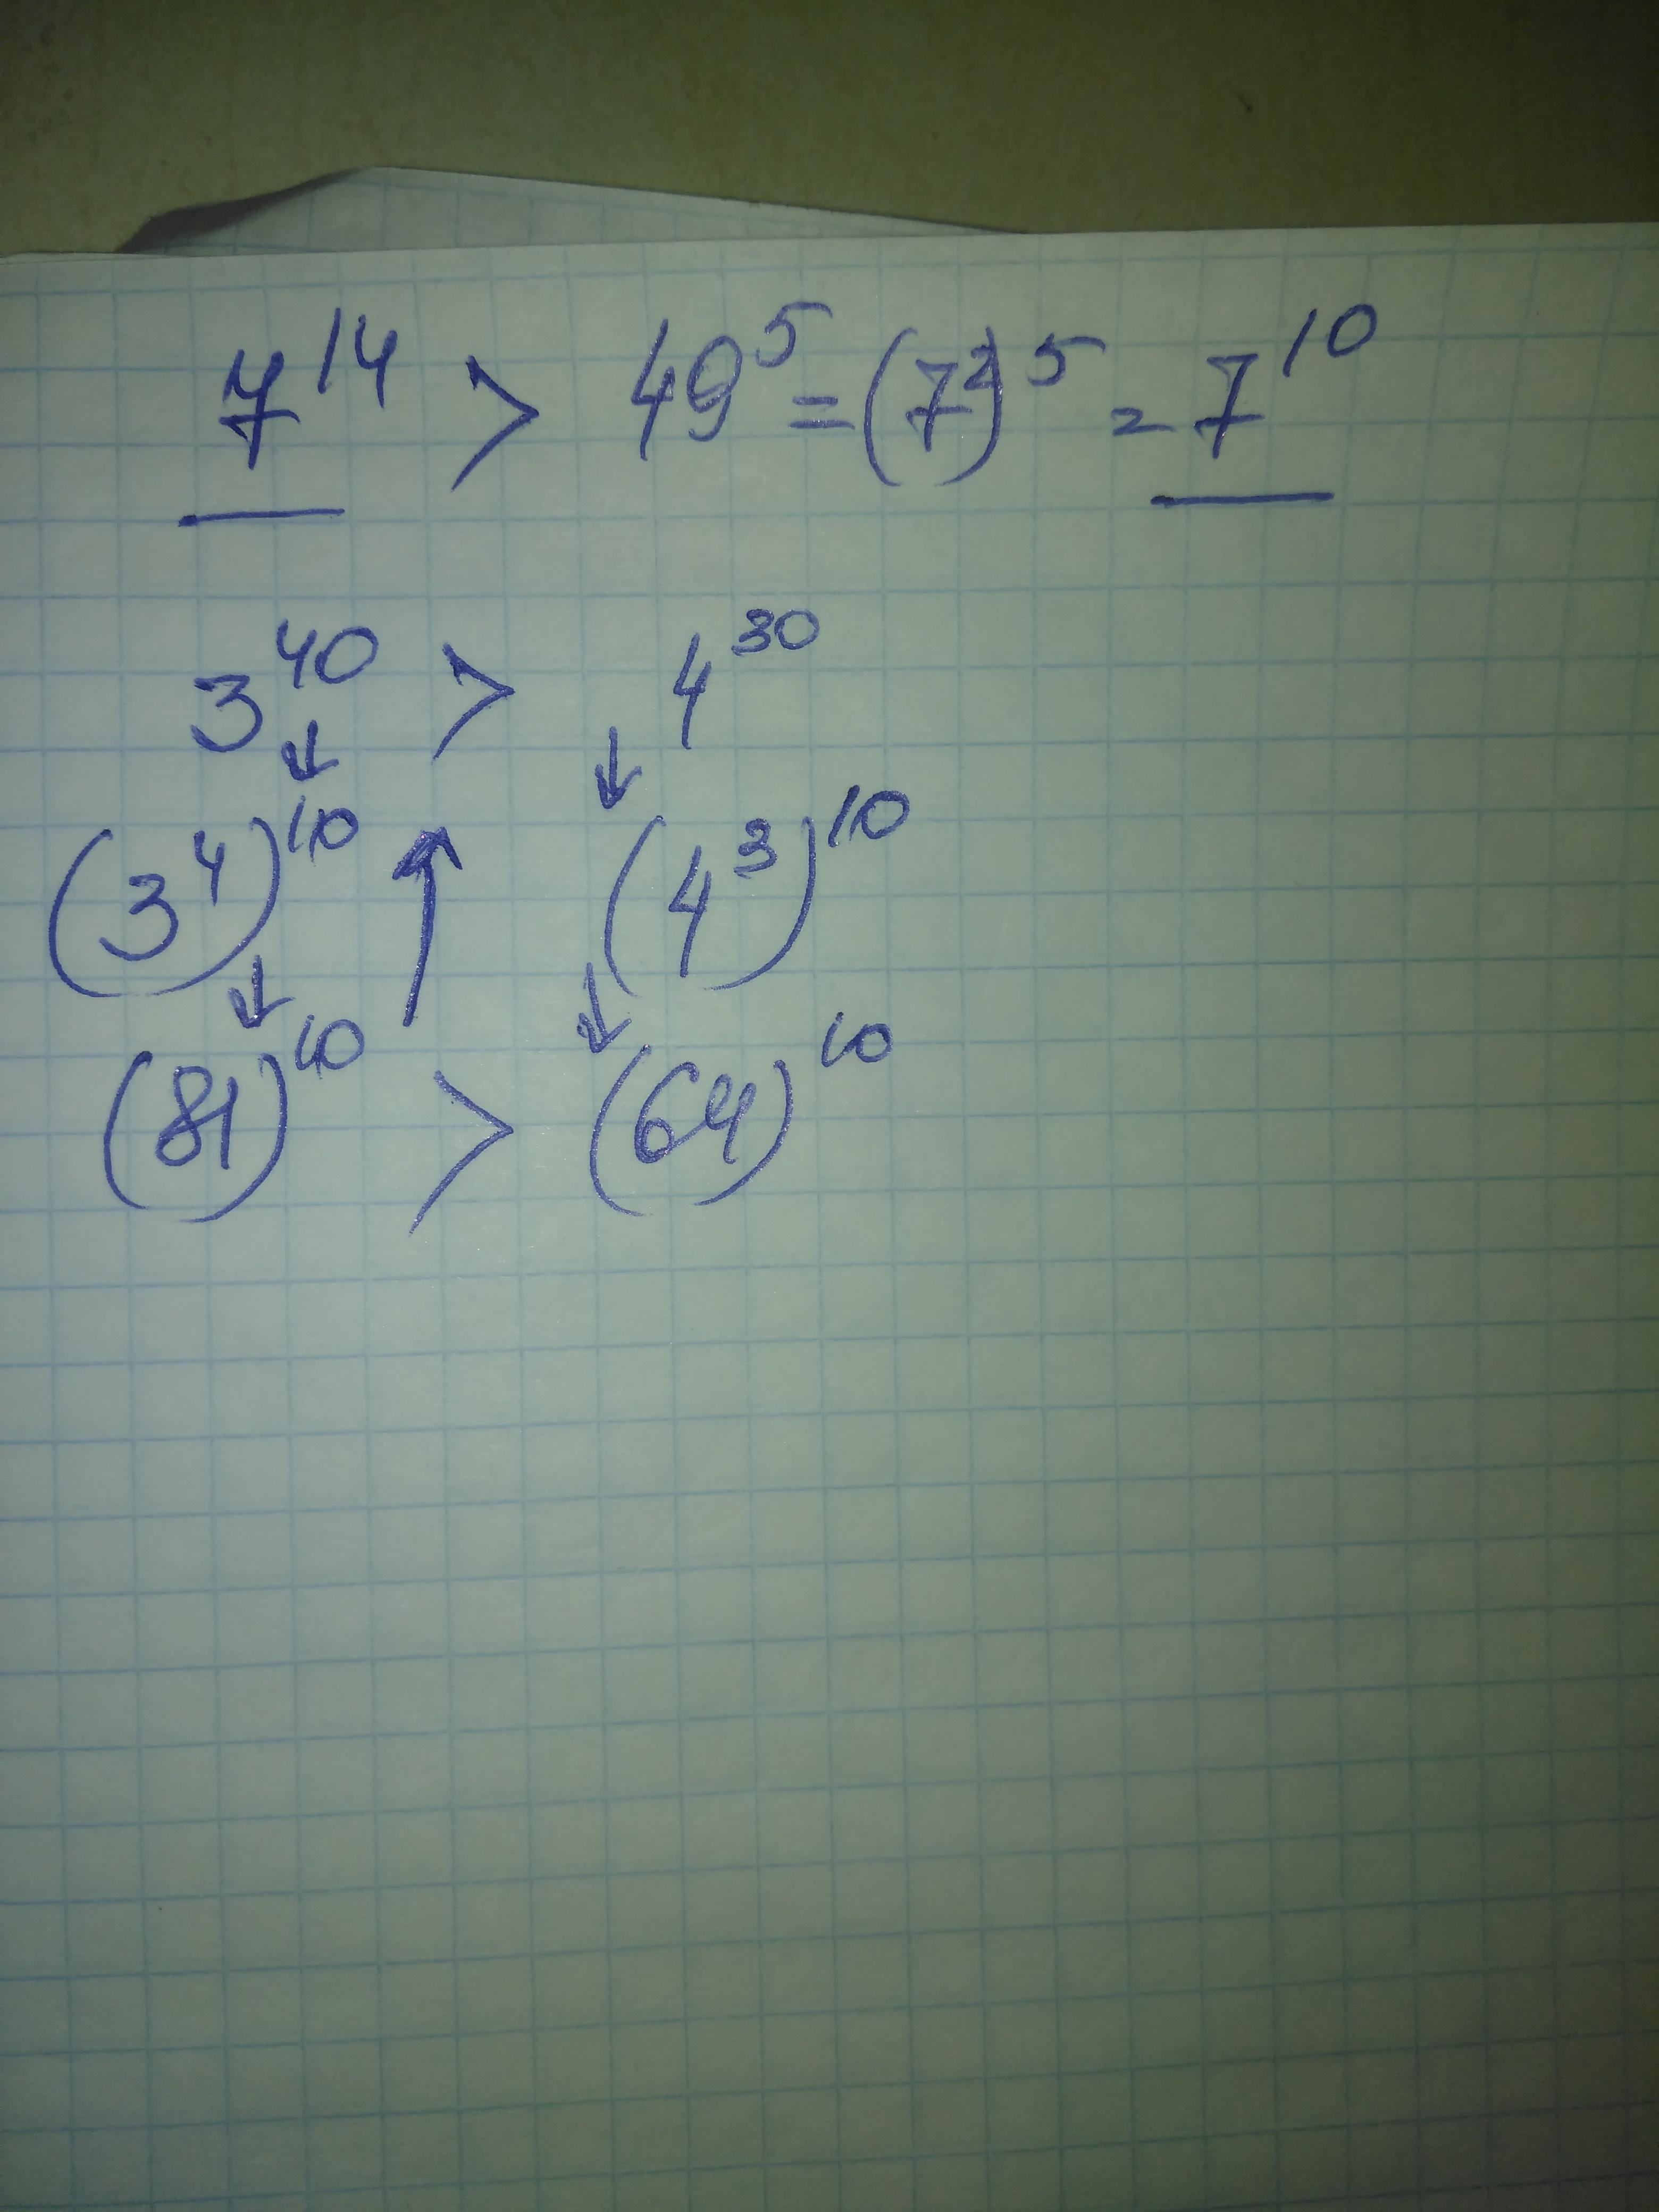 7^14 > 49^5 = (7^2)^5 = 7^10
3^40 > 4^30
↓ ↓
(3^4)^10 ↑ (4^3)^10
↓ ↓
(81)^10 > (64)^10